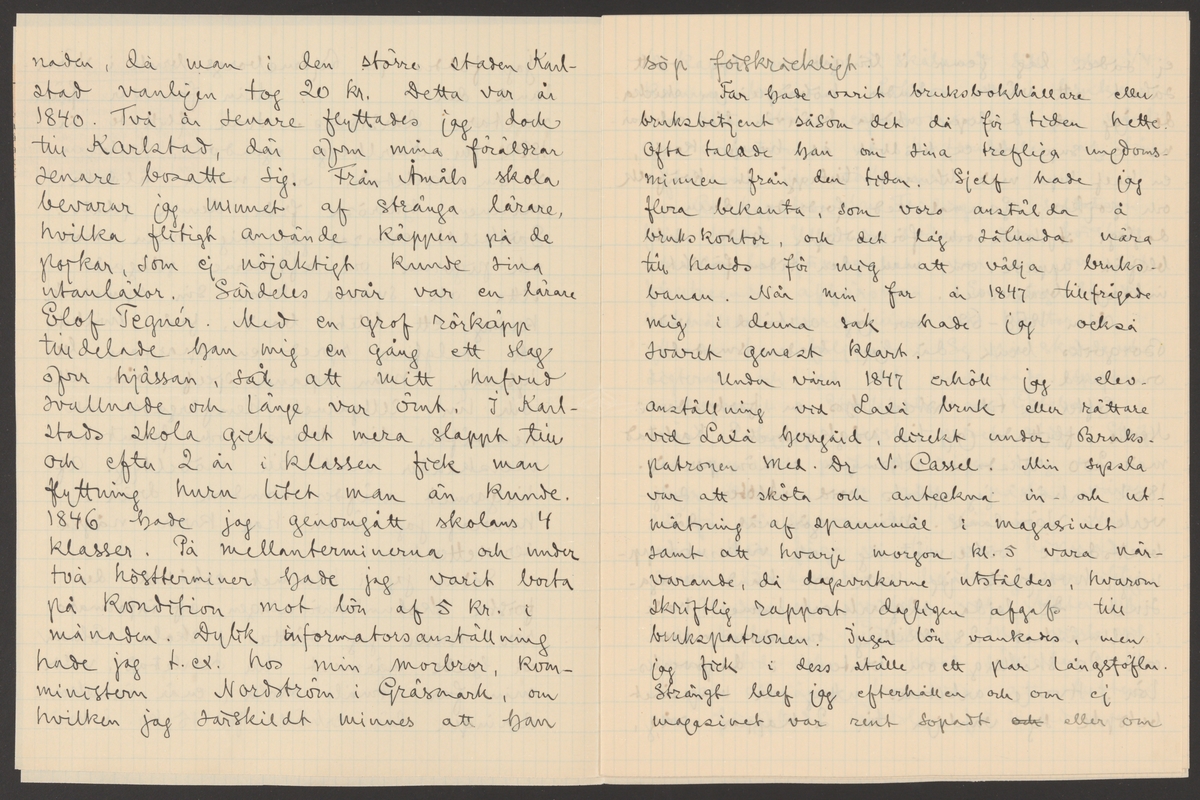 naden, då man i den större staden Karl-
stad vanligen tog 20 kr. Detta var år
1840. Två år senare flyttades jag dock
till Karlstad, där äfven mina föräldrar
senare bosatte sig. Från Åmåls skola
bevarar jag minnet af stränga lärare,
hvilka flitigt använde käppen på de
pojkar, som ej nöjaktigt kunde sina
utanläxor. Särdeles svår var en lärare
Elof Tegnér. Med en grof rörkäpp
tilldelade han mig en gång ett slag
öfver hjässan, så att mitt hufvud
svullnade och länge var ömt. I Karl-
stads skola gick det mera slappt till
och efter 2 år i klassen fick man
flyttning huru litet man än kunde.
1846 hade jag genomgått skolans 4
klasser. På mellanterminerna och under
två höstterminer hade jag varit borta
på kondition mot lön af 5 kr. i
månaden. Dylik informatorsanställning
hade jag t. ex. hos min morbror, kom-
ministern Nordström i Gräsmark, om
hvilken jag särskildt minnes att han
söp förskräckligt.
Far hade varit bruksbokhållare eller
bruksbetjent såsom det då för tiden hette.
Ofta talade han om sina trefliga ungdoms-
minnen från den tiden. Sjelf hade jag
flera bekanta, som voro anstälda å
brukskontor, och det låg sålunda nära
till hands för mig att välja bruks-
banan. När min far år 1847 tillfrågade
mig i denna sak hade jag också
svaret genast klart.
Under våren 1847 erhöll jag elev-
anställning vid Laxå bruk eller rättare
vid Laxå herrgård, direkt under Bruks-
patronen Med. Dr V. Cassel. Min syssla
var att sköta och anteckna in- och ut-
mätning af spannmål i magasinet
samt att hvarje morgon kl. 5 vara när-
varande, då dagsverkarne utstäldes, hvarom
skriftlig rapport dagligen afgafs till
brukspatronen. Ingen lön vankades, men
jag fick i dess ställe ett par långstöflar.
Strängt blef jag efterhållen och om ej
magasinet var rent sopadt och eller om